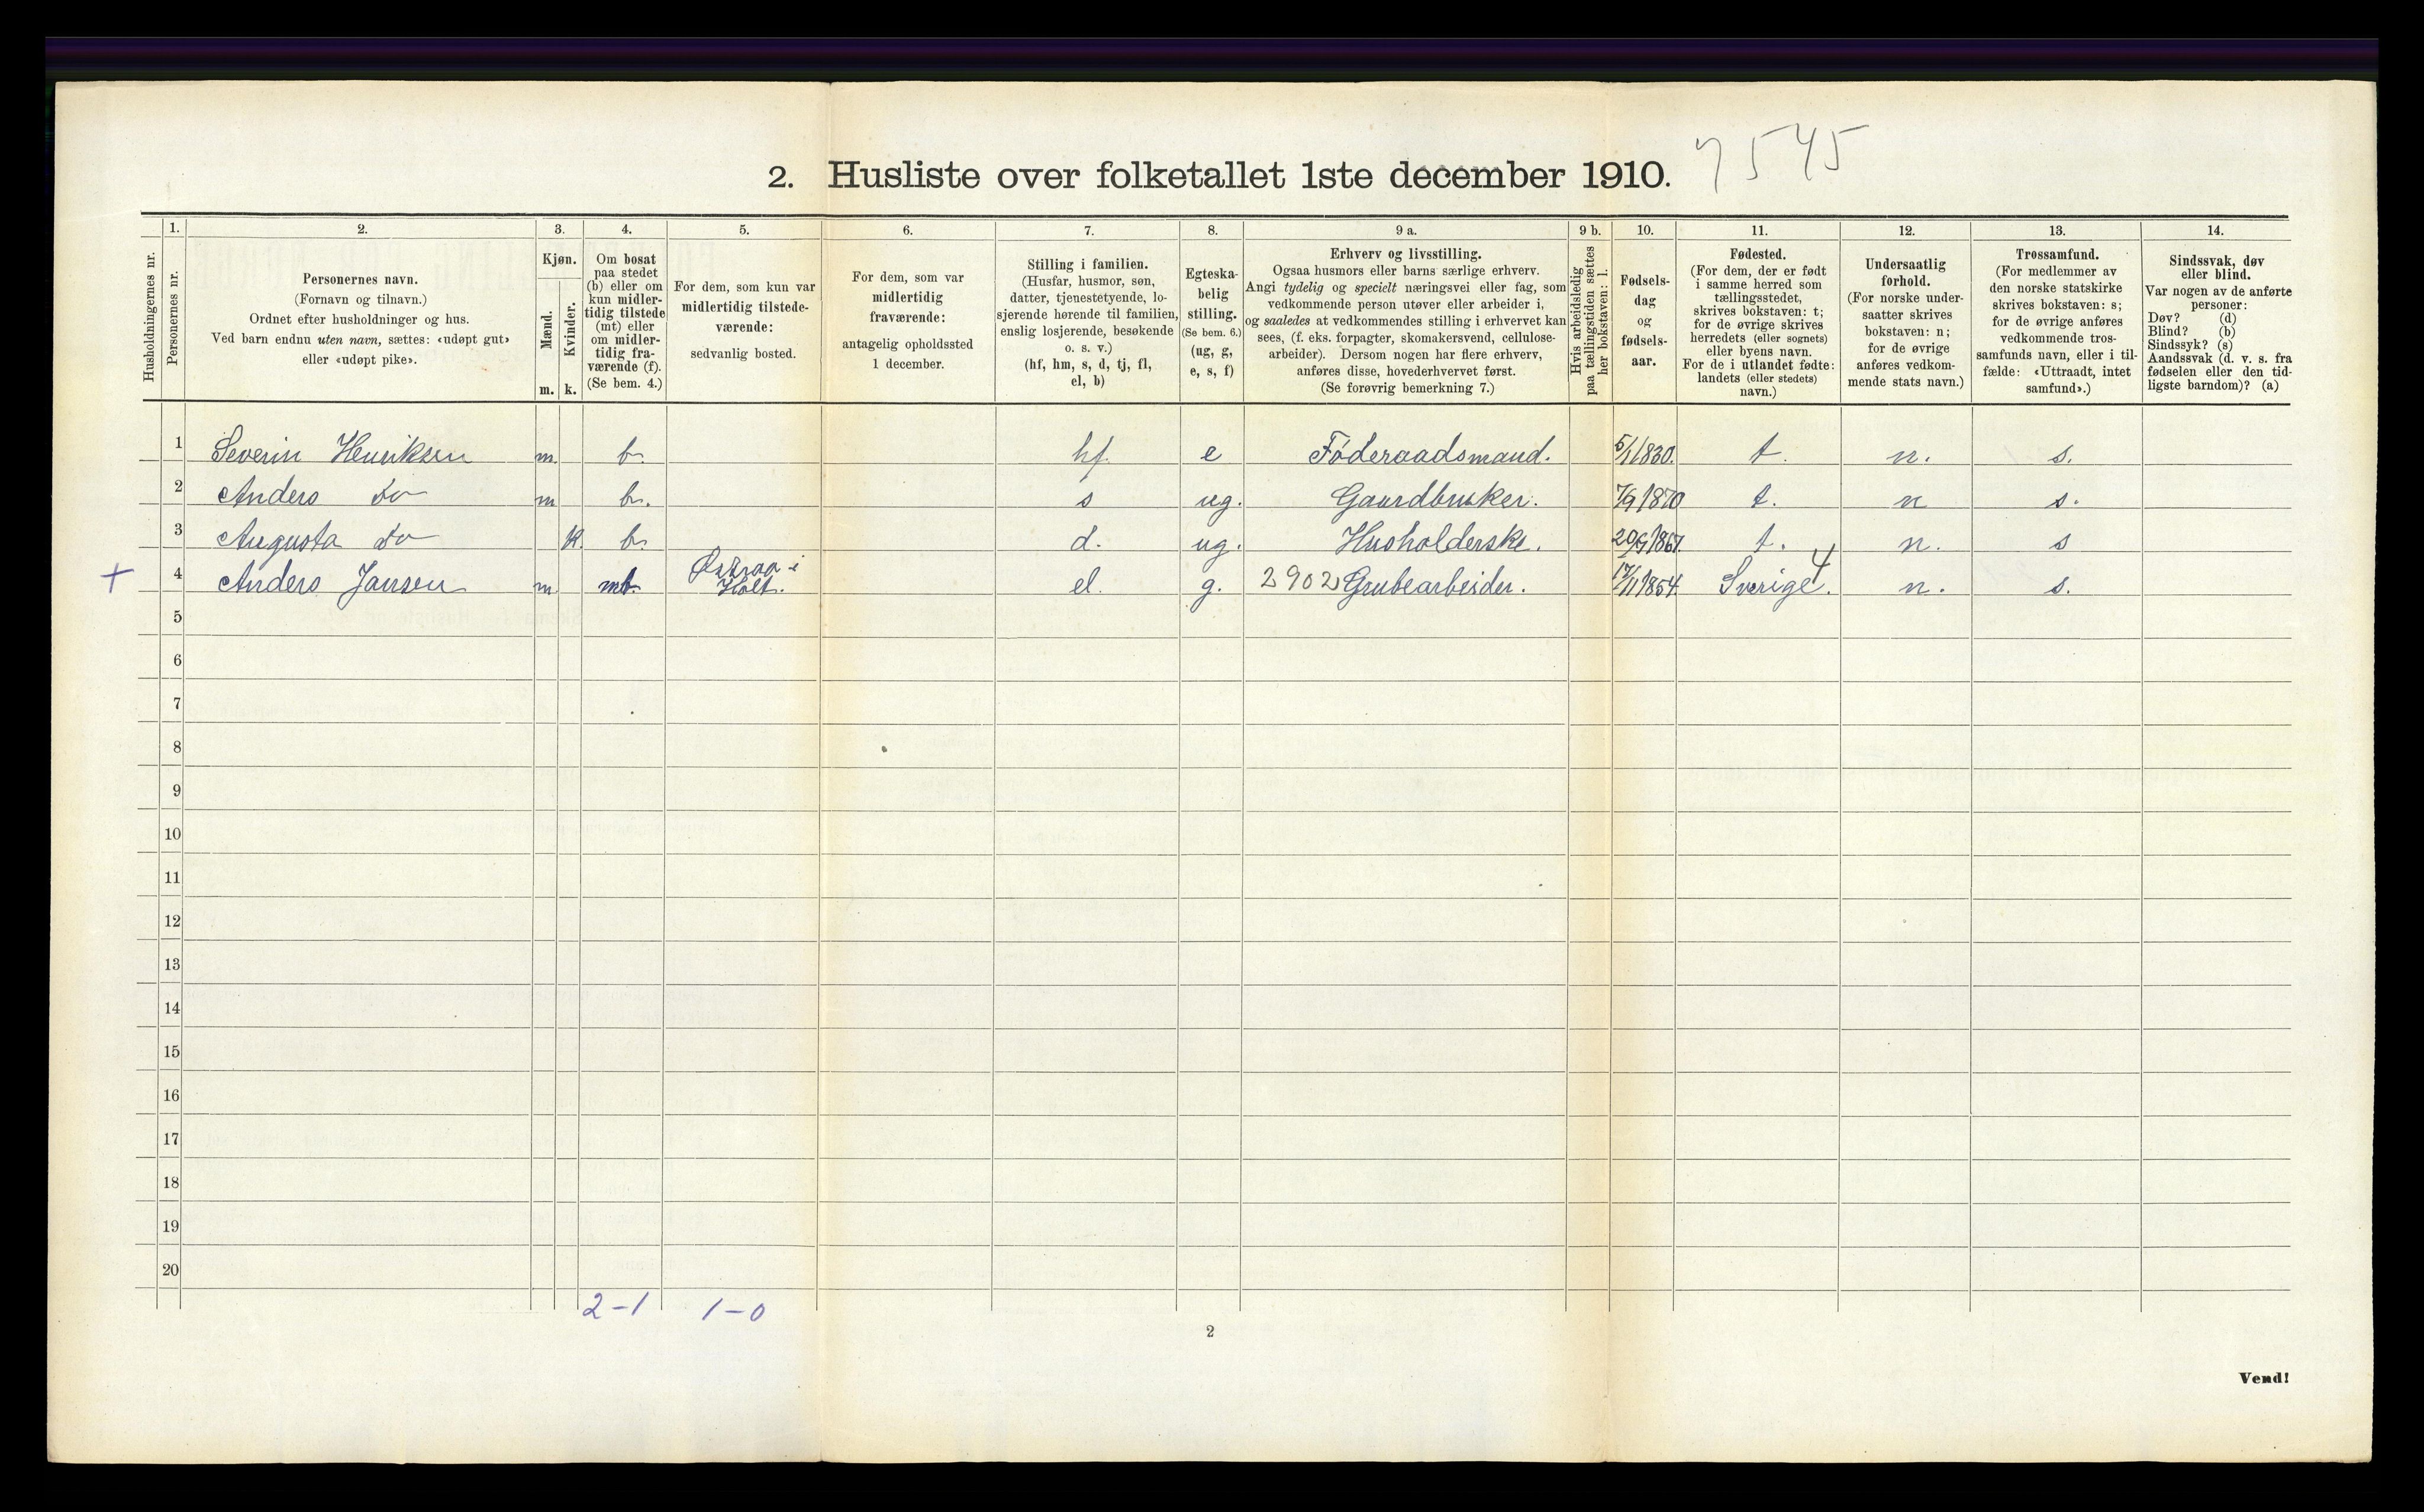 7545
2. Husliste over folketallet 1ste december 1910.
Husholdningernes nr.
1. Personernes nr.
2. Personernes navn.
(Fornavn og tilnavn.)
Ordnet efter husholdninger og hus.
Ved barn endnu uten navn, sættes: «udøpt gut»
eller «udøpt pike».
3. Kjøn.
Mænd. m.
Kvinder. k.
4. Om bosat
paa stedet
(b) eller om
kun midler-
tidig tilstede
(mt) eller
om midler-
tidig fra-
værende (f).
(Se bem. 4.)
5. For dem, som kun var
midlertidig tilstede-
værende:
sedvanlig bosted.
6. For dem, som var
midlertidig
fraværende:
antagelig opholdssted
1 december.
7. Stilling i familien.
(Husfar, husmor, søn,
datter, tjenestetyende, lo-
sjerende hørende til familien,
enslig losjerende, besøkende
o. s. v.)
(hf, hm, s, d, tj, fl,
el, b)
8. Egteska-
belig
stilling.
(Se bem. 6.)
(ug, g,
e, s, f)
9 a. Erhverv og livsstilling.
Ogsaa husmors eller barns særlige erhverv.
Angi tydelig og specielt næringsvei eller fag, som
vedkommende person utøver eller arbeider i,
og saaledes at vedkommendes stilling i erhvervet kan
sees, (f. eks. forpagter, skomakersvend, cellulose-
arbeider). Dersom nogen har flere erhverv,
anføres disse, hovederhvervet først.
(Se forøvrig bemerkning 7.)
9 b. Hvis arbeidsledig
paa tællingstiden sættes
her bokstaven: l.
10. Fødsels-
dag
og
fødsels-
aar.
11. Fødested.
(For dem, der er født
i samme herred som
tællingsstedet,
skrives bokstaven: t;
for de øvrige skrives
herredets (eller sognets)
eller byens navn.
For de i utlandet fødte:
landets (eller stedets)
navn.)
12. Undersaatlig
forhold.
(For norske under-
saatter skrives
bokstaven: n;
for de øvrige
anføres vedkom-
mende stats navn.)
13. Trossamfund.
(For medlemmer av
den norske statskirke
skrives bokstaven: s;
for de øvrige anføres
vedkommende tros-
samfunds navn, eller i til-
fælde: «Uttraadt, intet
samfund».)
14. Sindssvak, døv
eller blind.
Var nogen av de anførte
personer:
Døv? (d)
Blind? (b)
Sindssyk? (s)
Aandssvak (d. v. s. fra
fødselen eller den tid-
ligste barndom)? (a)
1 Severin Henriksen m. b. hf. e Føderaadsmand. 5/1 1830. t. n. s.
2 Anders do m b. s ug. Gaardbruker. 7/9 1870 t. n s.
3 Augusta do k. b. d. ug. Husholderske. 1867. t. n. s
+ 4 Anders Jansen m mt. i Holt. el. g. 2902 Grubearbeider. 17/11 1854. Sverige. 4 n. s.
5
6
7
8
9
10
11
12
13
14
15
16
17
18
19
20
2-1 1-0
2
Vend!